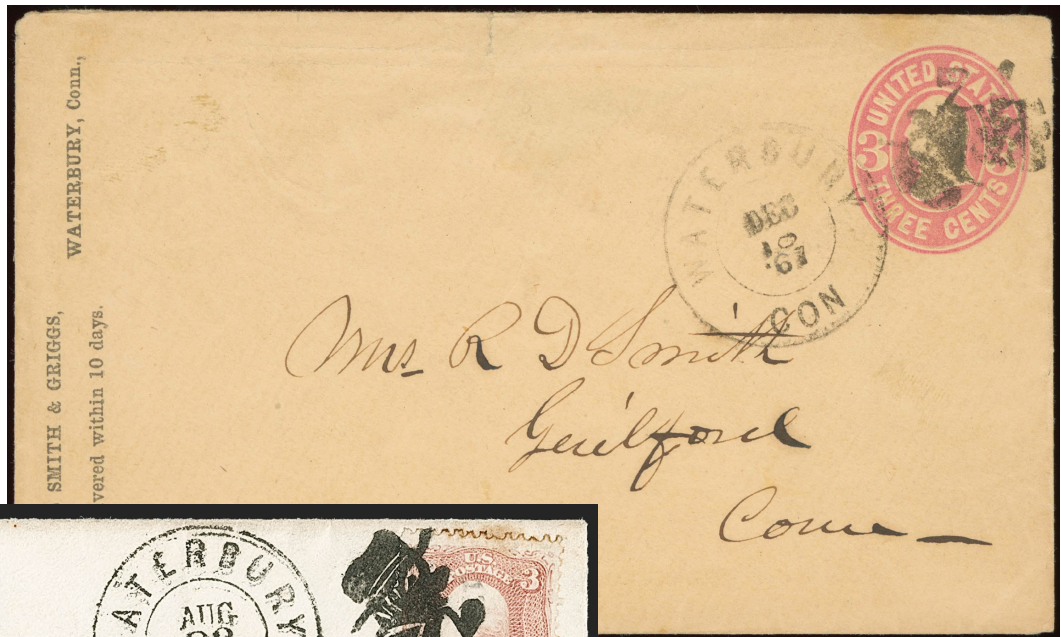 SMITH & GRIGGS,
WATERBURY, Conn.,
vered within 10 days.
UNITED STATE
3
THREE CENTS
WATERBURY
DEC
10
'67
CON
Mrs R D Smith
Guilford
Conn
ATERBURY
AUG
U.S.
POSTAGE.
3